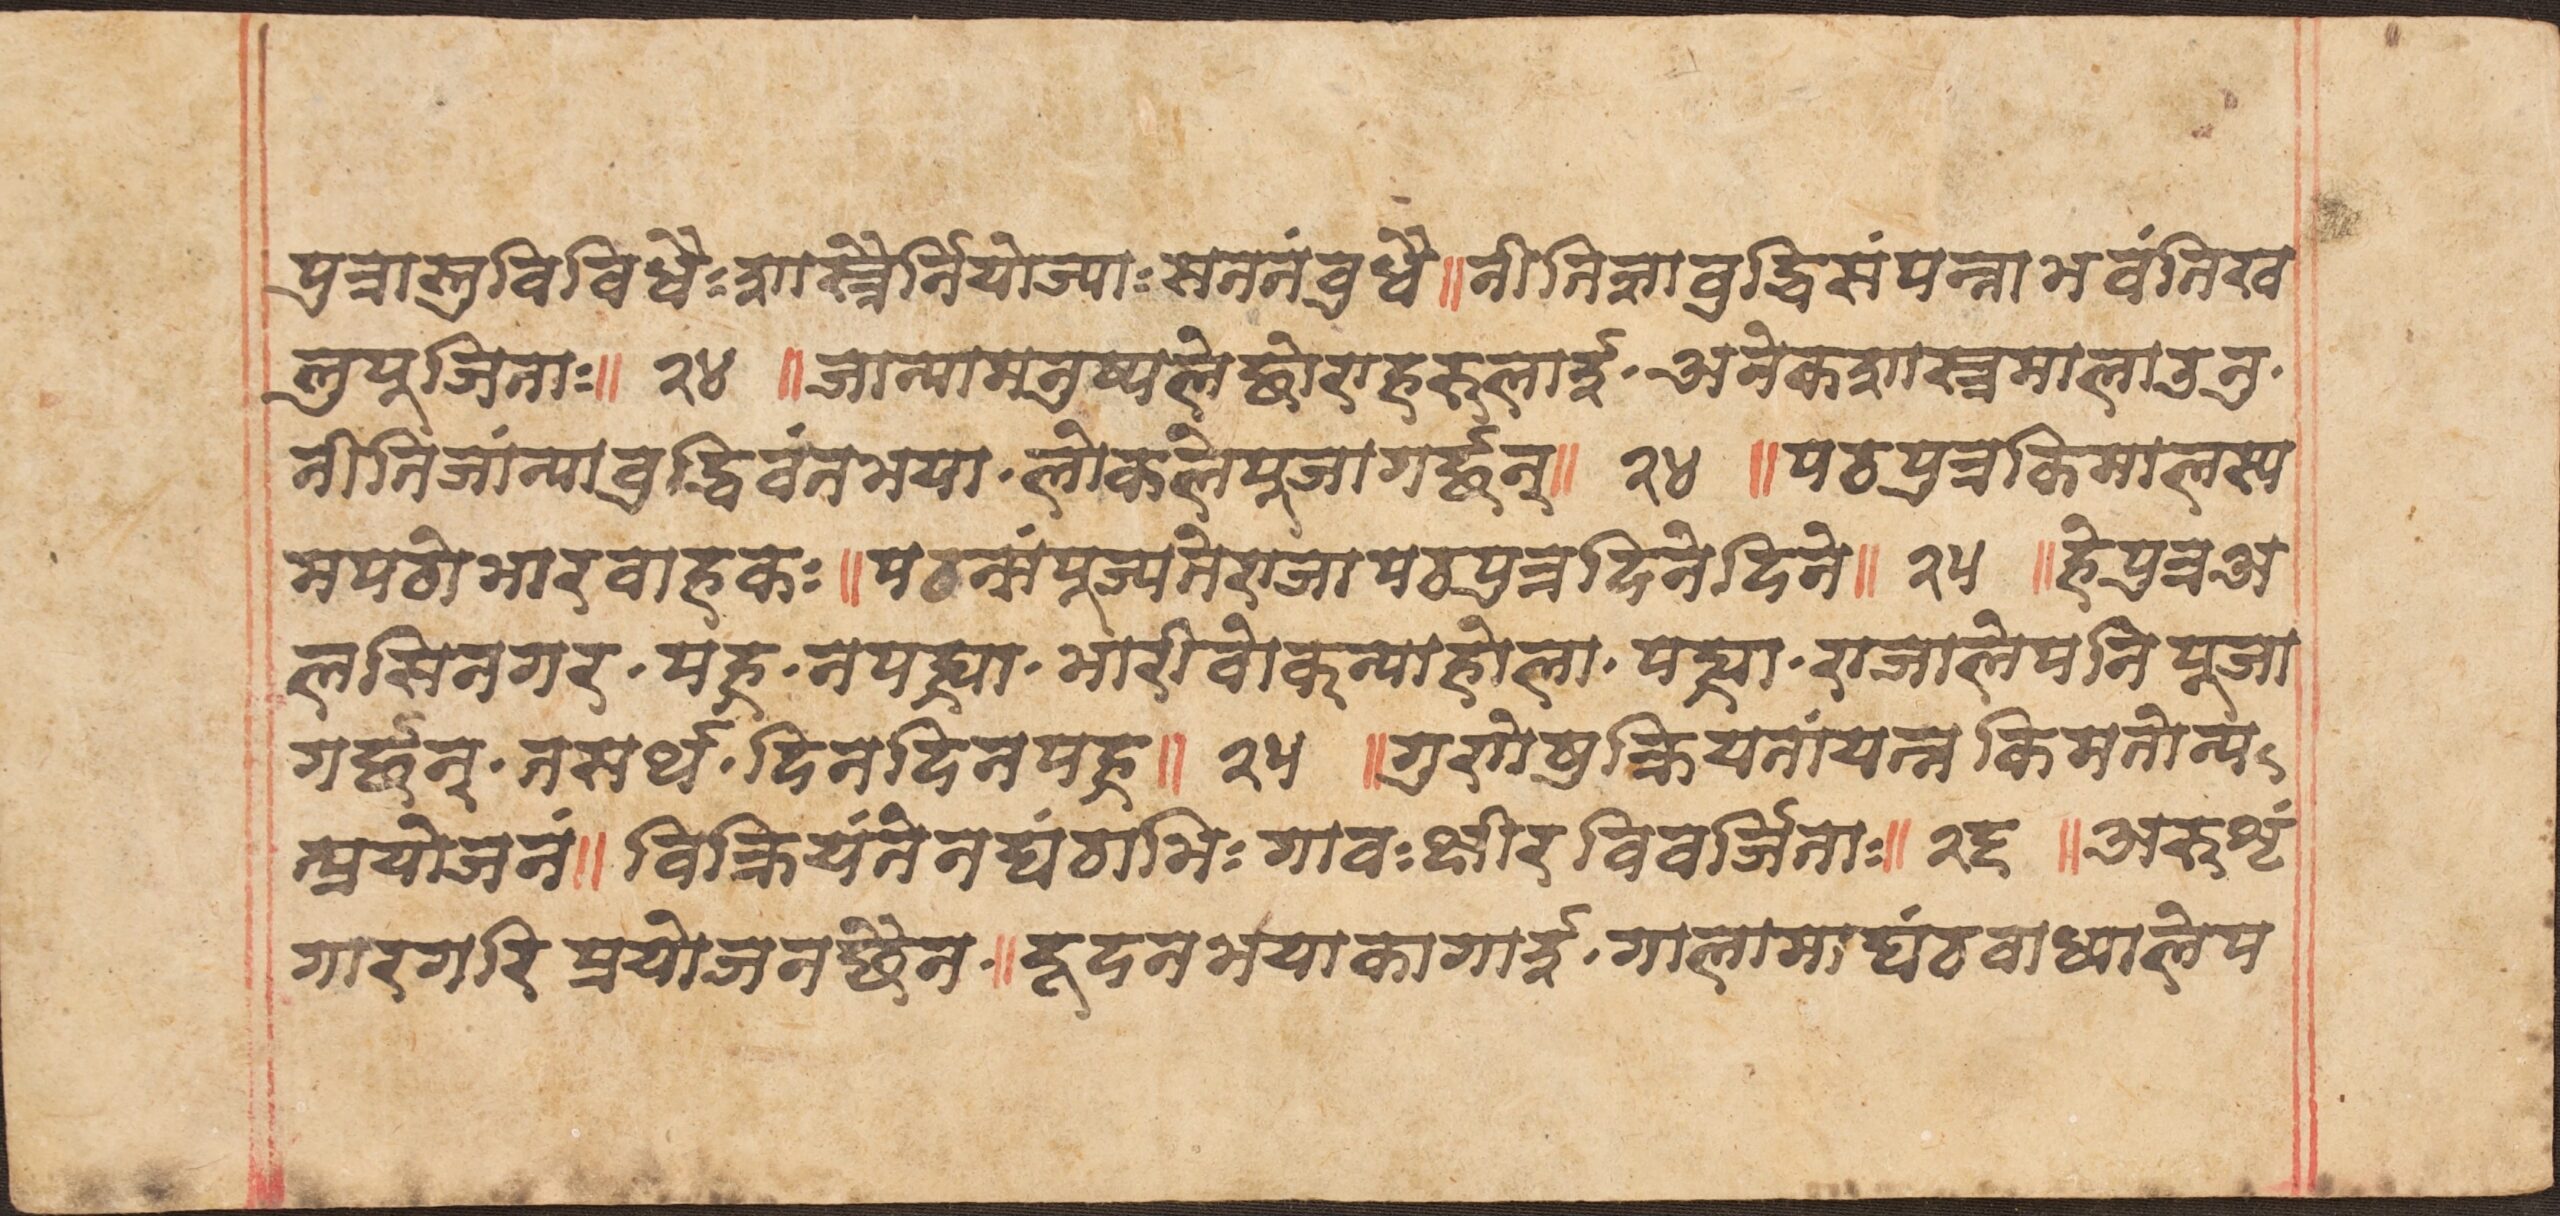 पुत्रास्तुविविधैःशास्त्रैर्नियोज्याःसततंवुधै॥नीतिज्ञावुद्धिसंपन्नाभवंतिख
लुपूजिताः॥ २४ ॥जान्यामनुष्यलेछोराहरूलाई·अनेकशास्त्रमालाउनु·
नीतिजांन्यावुद्धिवंतभया·लोकलेपूजागर्छन्॥ २४ ॥पठपुत्रकिमालस्य
मपठोभारवाहकः॥पठन्तंपूज्यतेराजापठपुत्रदिनेदिने॥ २५ ॥हेपुत्रअ
लसिनगर·पढ·नपढ्या·भारीवोकन्याहोला·पढ्या·राजालेपनिपूजा
गर्छन्·तसर्थ·दिनदिनपढ॥ २५ ॥गुणेषुक्रियतांयत्नकिमतोन्यः
त्प्रयोजनं॥विक्रियंतेनघंठाभिःगावःक्षीरविवर्जिताः॥ २६ ॥अरूशृं
गारगरिप्रयोजनछैन·॥दूदनभयाकागाई·गालामाघंठवाध्यालेप